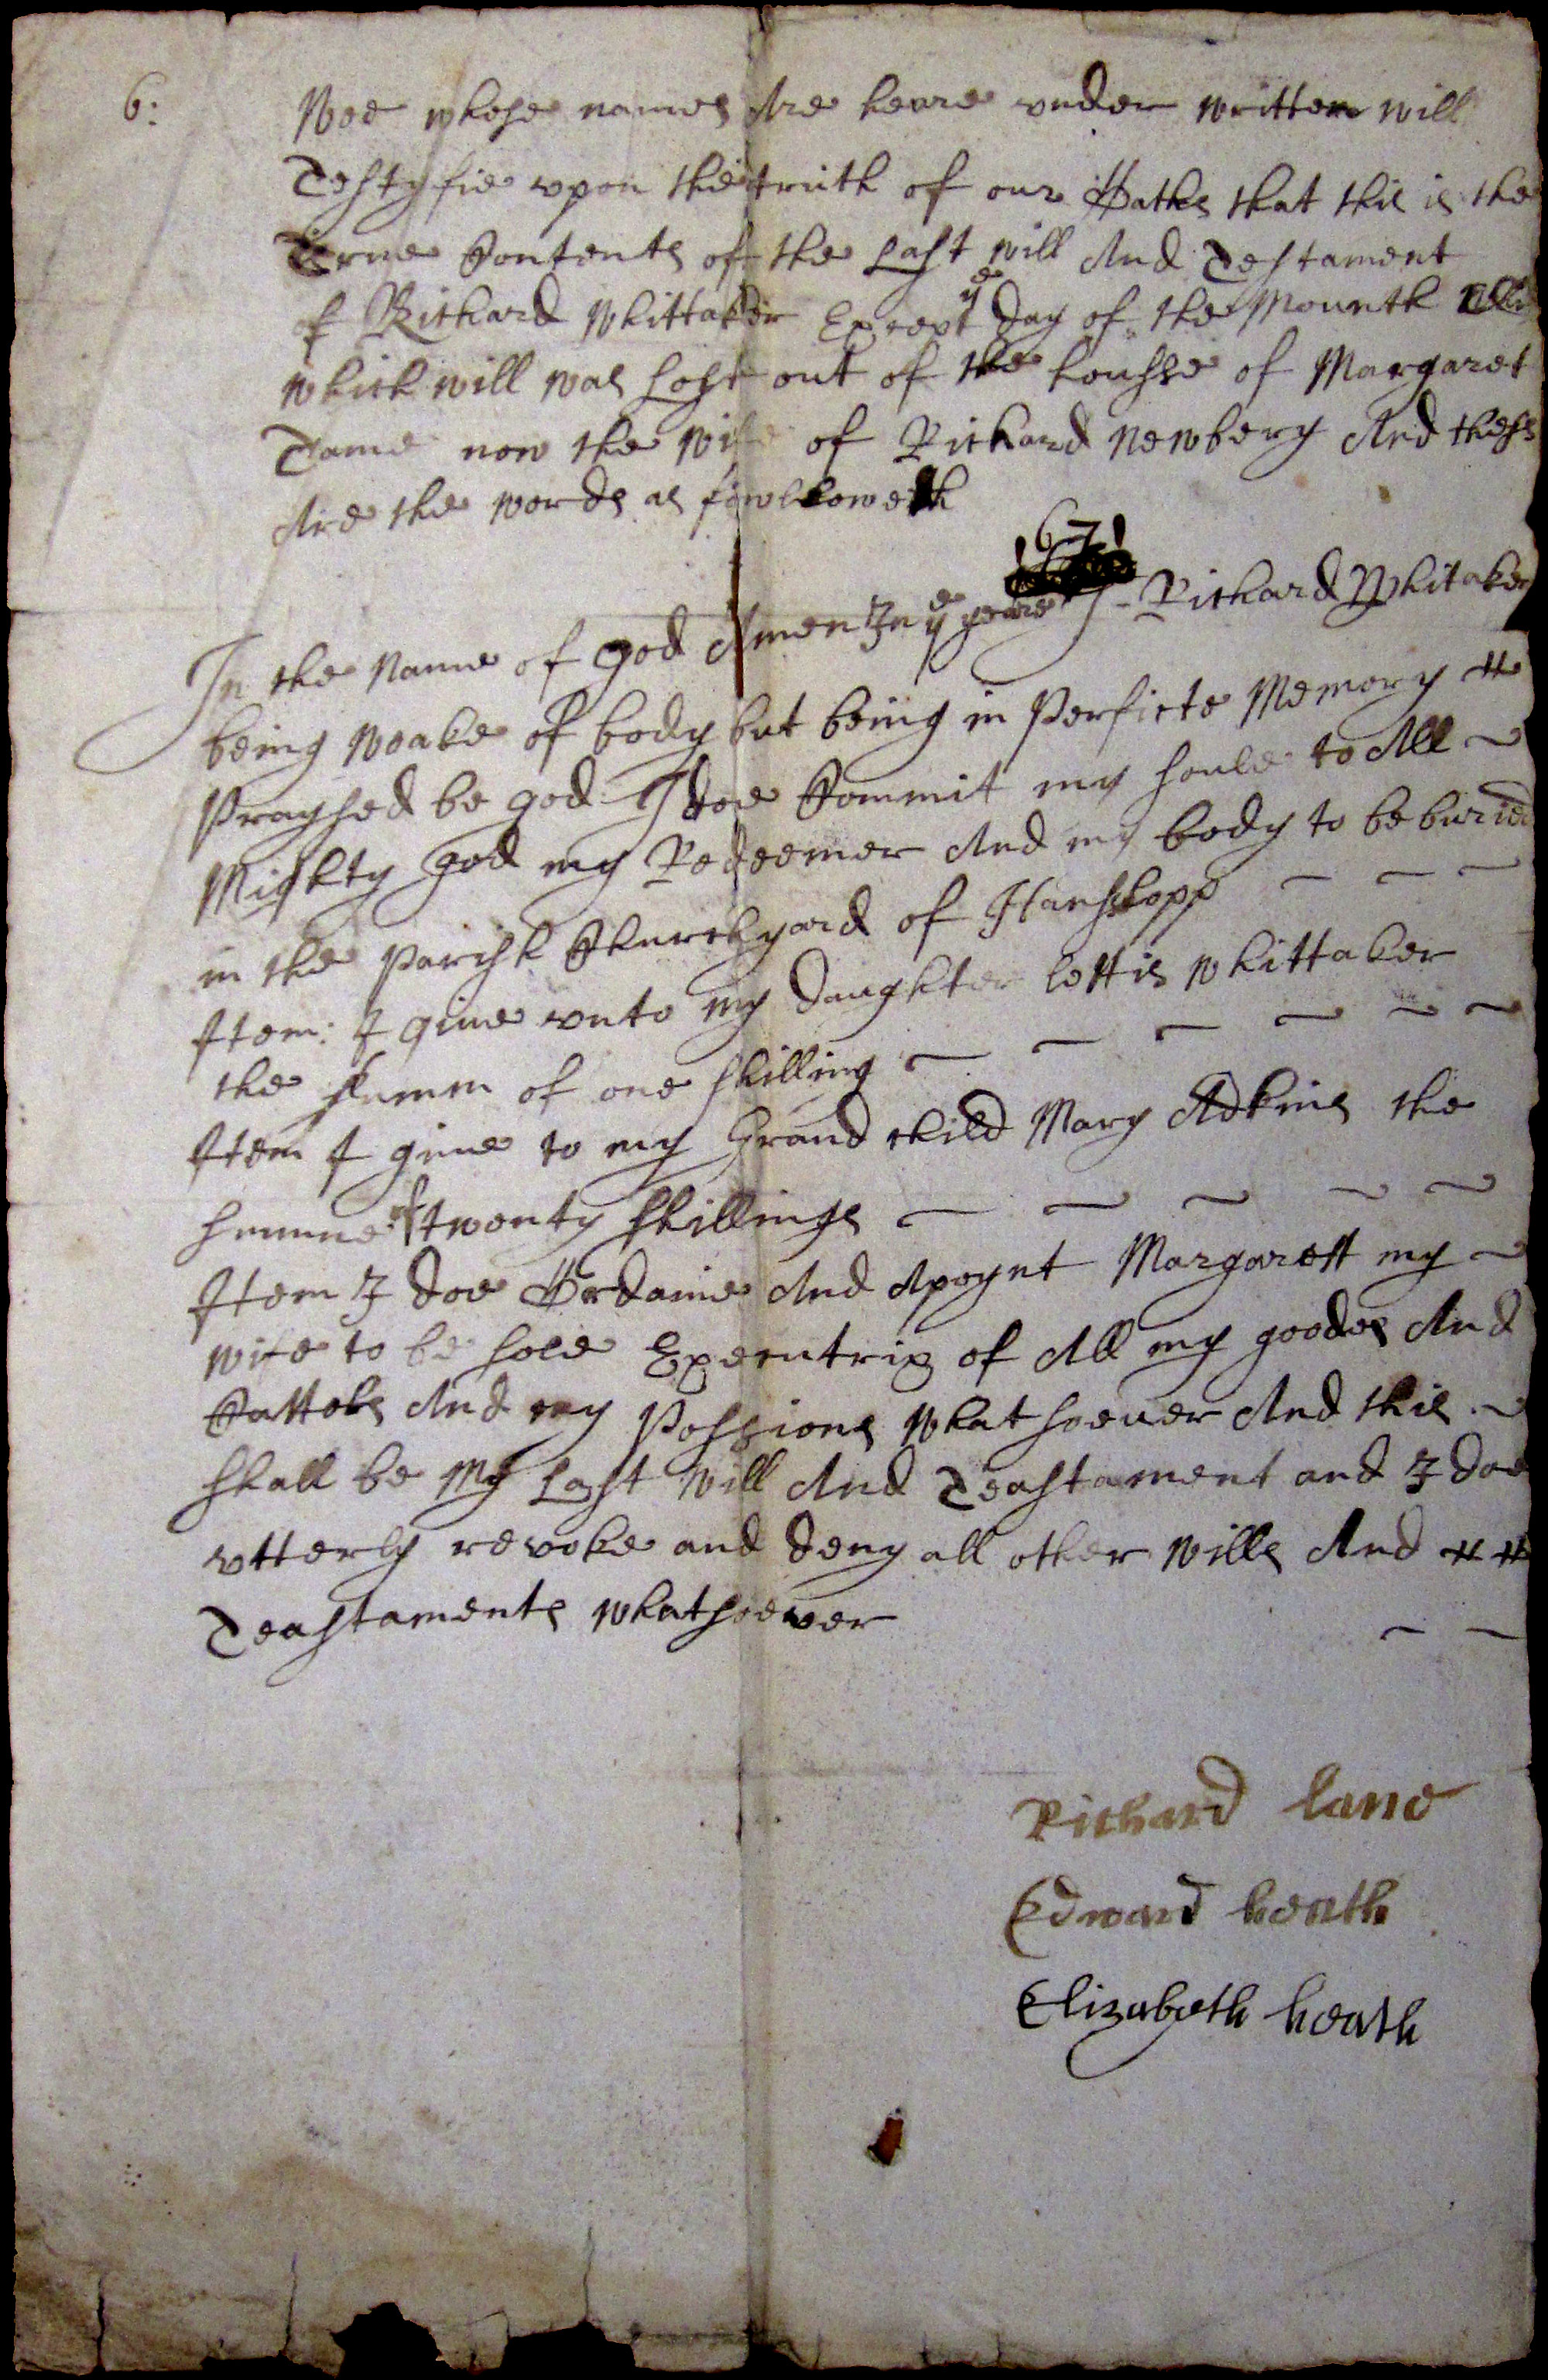 6:
Wee whose names Are heare vnder written will
Testyfie vpon the truth of our Oathes that this is the
trrue Contents of the Last will And Testament
of Richard Whittaker Except ye day of the Mounth
which will was Lost out of the housse of Margaret
Tame now the wife of Richard Newbery And thess
Are the words as fowlloweth
In the Name of god Amen In ye yeare 1671 I - Richard Whitaker
being weake of body but being in Perficte Memory
Prayshed be god I doe Commit my soule to All
Mighty god my Redeemer And my body to be buried
in the Parish Churchyard of Hanslopp
Item: I giue vnto my daughter lettis whittaker
the summ of one shilling
Item I giue to my Grand child Mary Adkins the
summe of twenty shillings
Item I doe Ordaine And Apoynt Margarett my
wife to be sole Executrix of All my goodes And
Cattols And my Possions whatsoeuer And this
shall be My Last will And Teastament and I doe
vtterly revoke and deny all other wills And
Teastaments whatsoever
Richard lane
Edward heath
Elizabeth heath